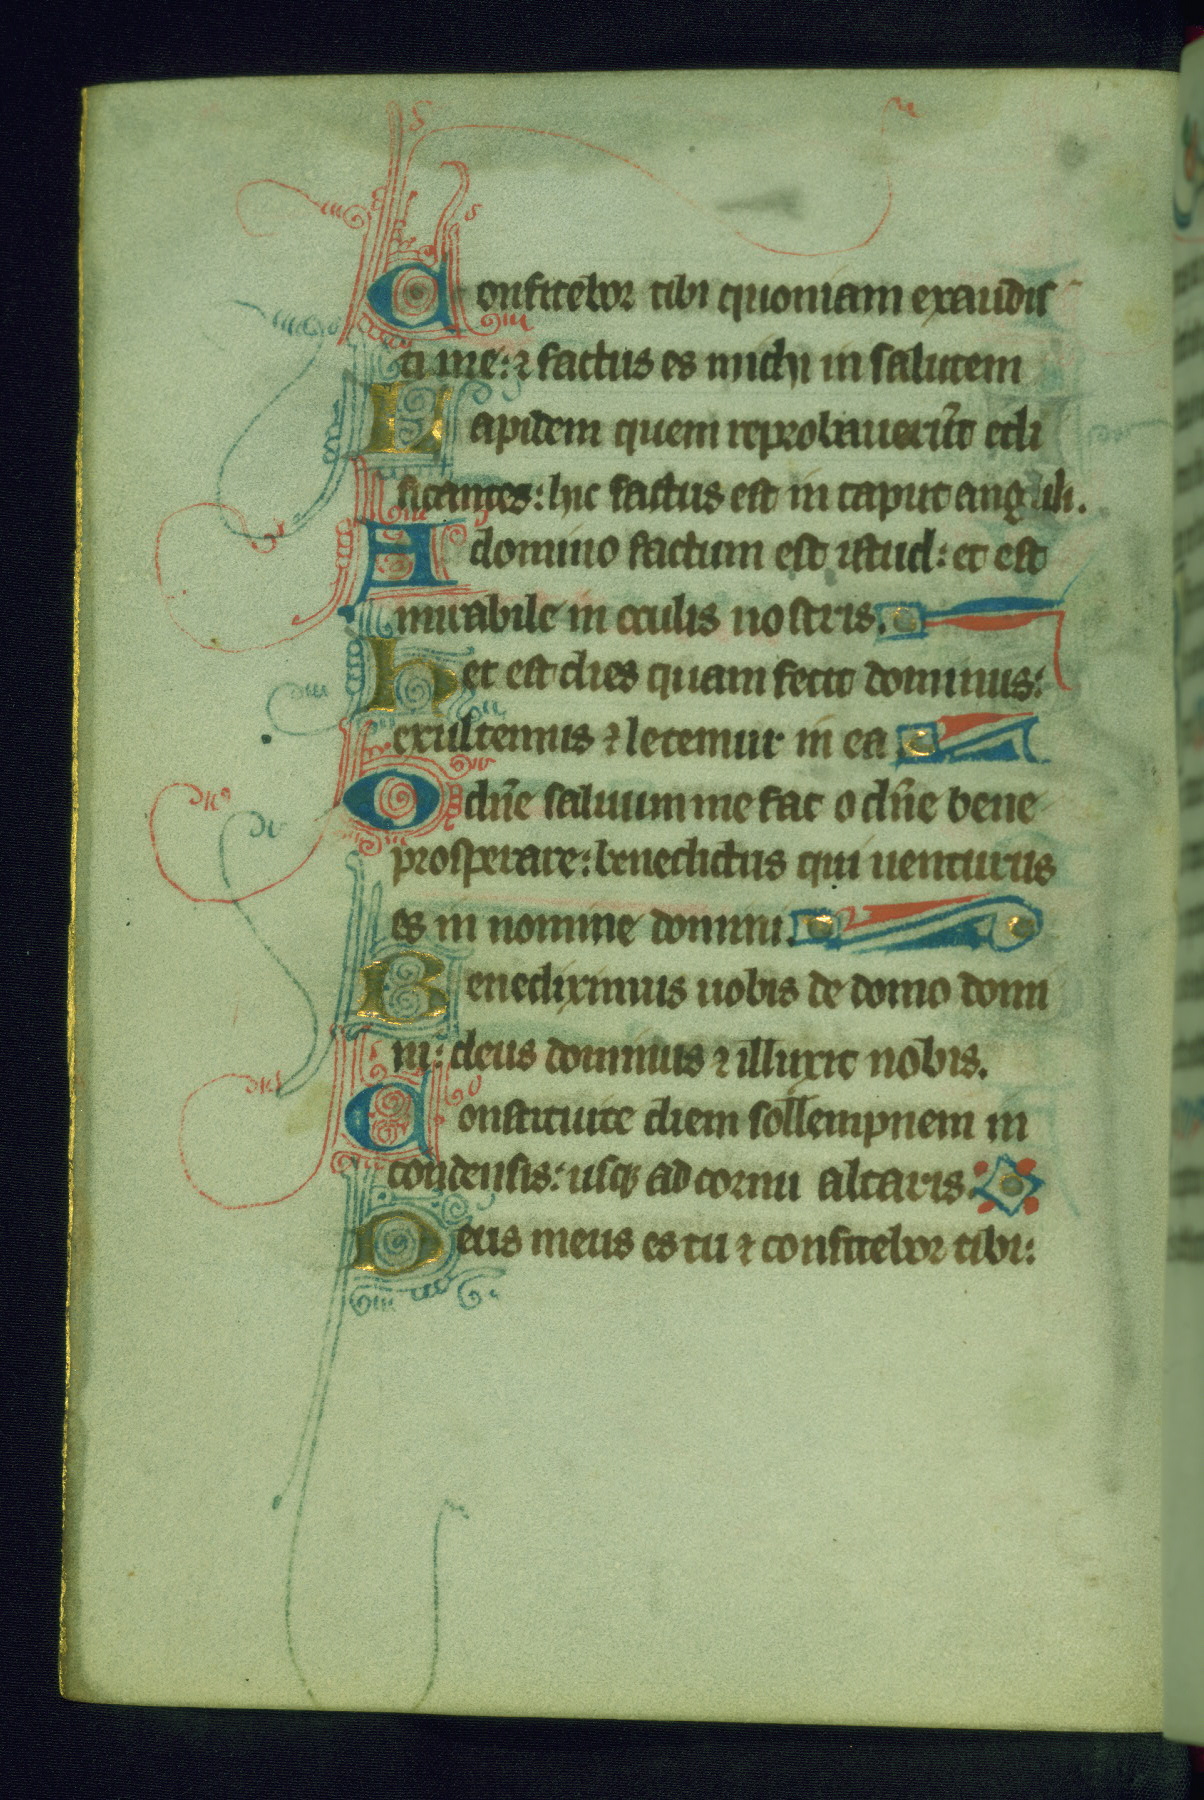 Confitebor tibi quoniam exaudis
ti me: ⁊ factus es michi in salutem
Lapidem quem reprobauerūt edi
ficantes: hic factus est in caput anguli.
A domino factum est istud: et est
mirabile in oculis nostris.
Hec est dies quam fecit dominus:
exultemus ⁊ letemur in ea
O dn̄e saluum me fac o dn̄e bene
prosperare: benedictus qui uenturus
es in nomine domini.
Benediximus uobis de domo domi
ni: deus dominus ⁊ illuxit nobis.
Constituite diem sollempnem in
condensis: usqꝫ ad cornu altaris.
Deus meus es tu ⁊ confitebor tibi: